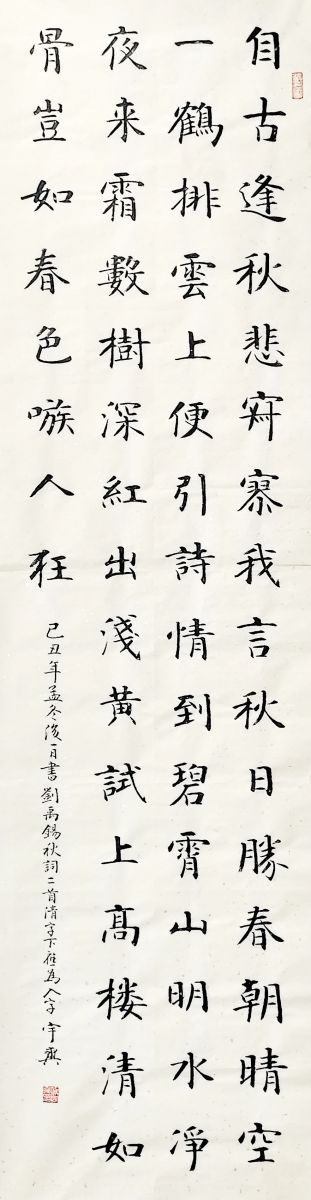 自古逢秋悲寂寥我言秋日勝春朝晴空
一鶴排雲上便引詩情到碧霄山明水凈
夜来霜數樹深紅出淺黄試上髙楼清如
骨豈如春色嗾人狂
己丑年孟冬後一日書劉禹錫秋詞二首清字下應為入字 宇